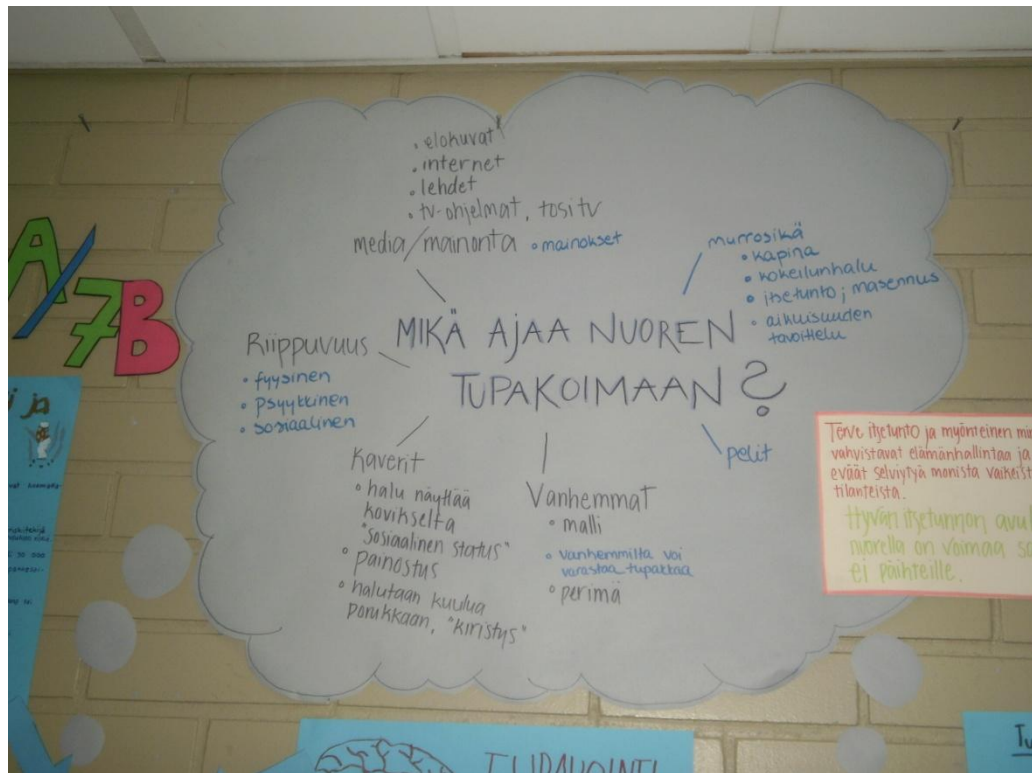 A/7B
• elokuvat
• internet
• lehdet
• tv-ohjelmat, tositv
media/mainonta • mainokset
murrosikä
• kapina
• kokeilunhalu
• itsetunto; masennus
• aikuisuuden
tavoittelu
MIKÄ AJAA NUOREN
TUPAKOIMAAN?
Riippuvuus
• fyysinen
• psyykkinen
• sosiaalinen
Kaverit
• halu näyttää
kovikselta
"sosiaalinen status"
• painostus
• halutaan kuulua
porukkaan, "kiristys"
Vanhemmat
• malli
• vanhemmilta voi
varastaa tupakkaa
• perimä
pelit
Terve itsetunto ja myönteinen
vahvistavat elämänhallintaa ja
eväät selviytyä monista
tilanteista.
Hyvän itsetunnon
nuorella on voimaa
ei päihteille.
ja
TUPAKOINTI